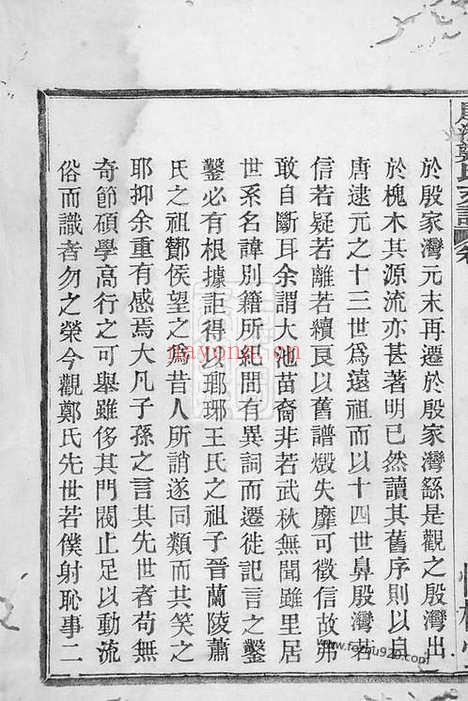 於殷家灣元末再遷於殷家灣繇是觀之殷灣出
於槐木其源流亦甚著明已然讀其舊序則以自
唐逮元之十三世爲遠祖而以十四世鼻殷灣若
信若疑若離若續良以舊譜燬失靡可徵信故弗
敢自斷耳余謂大池苗裔非若武秋無聞雖里居
世系名諱別籍所紀間有異詞而遷徙記言之鑿
鑿必有根據詎得以瑯琊王氏之祖子晉蘭陵蕭
氏之祖酇侯望之爲昔人所誚遂同類而共笑之
耶抑余重有感焉大凡子孫之言其先世者苟無
奇節碩學高行之可舉雖侈其門閥止足以動流
俗而識者勿之榮今觀鄭氏先世若僕射恥事二
nayong.cn
www.fojzhu920.com